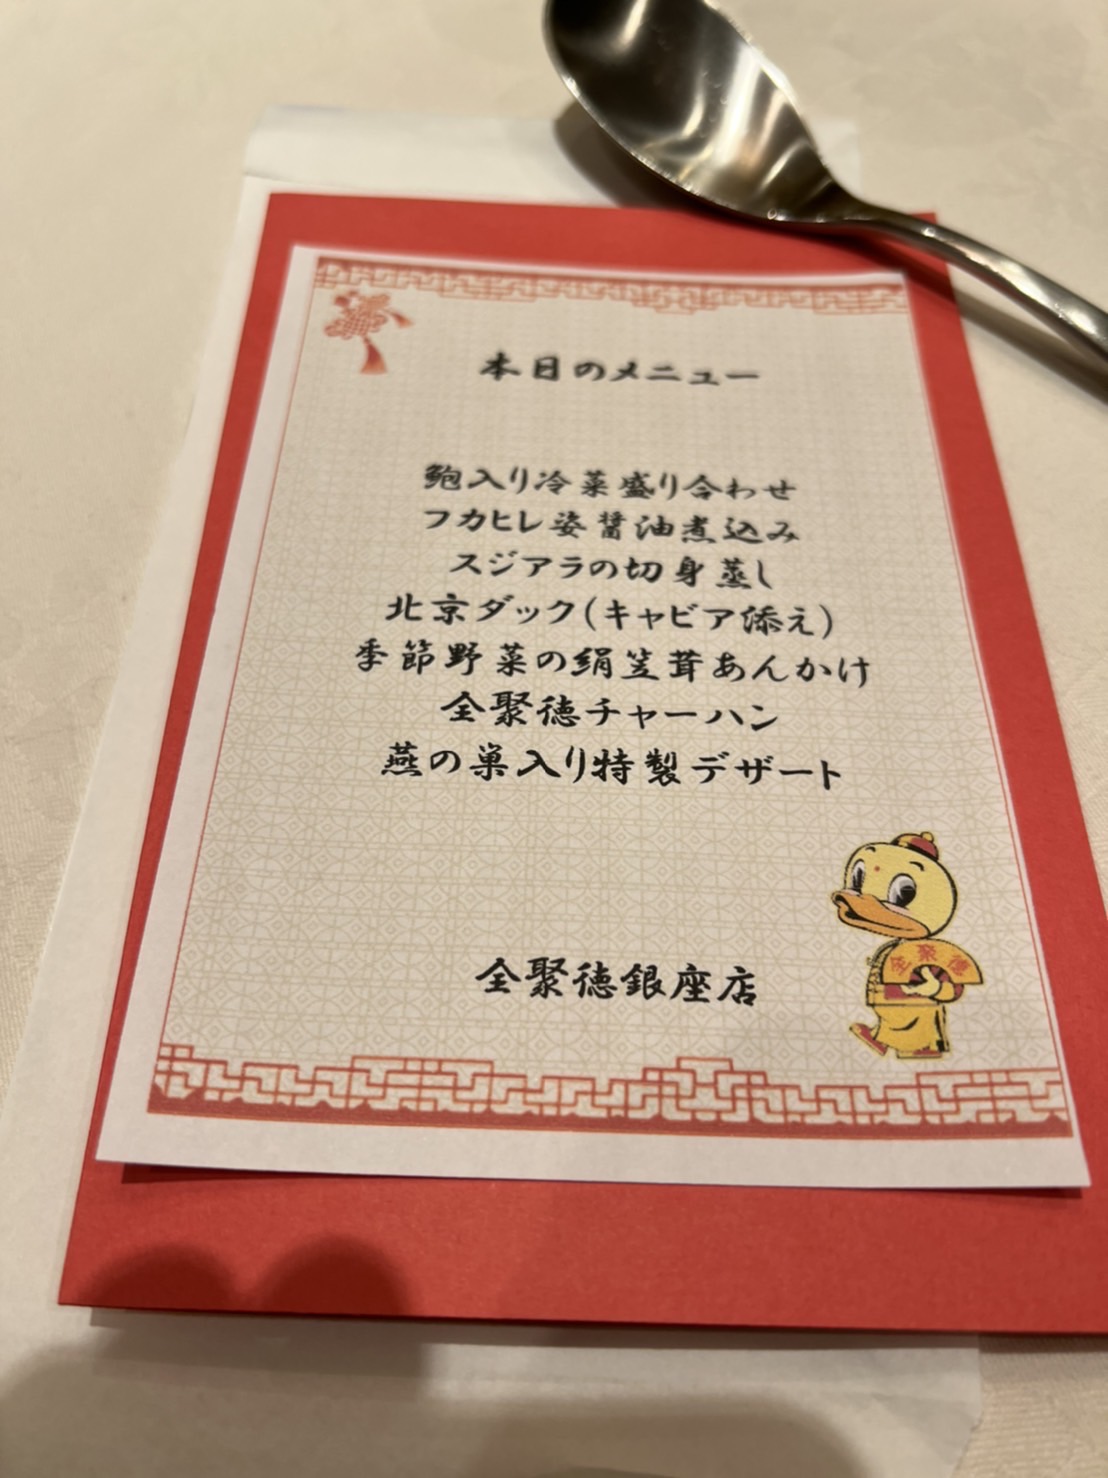 本日のメニュー
鮑入り冷菜盛り合わせ
フカヒレ姿醤油煮込み
スジアラの切身蒸し
北京ダック(キャビア添え)
季節野菜の絹笠茸あんかけ
全聚徳チャーハン
燕の巣入り特製デザート
全聚德
全聚徳銀座店